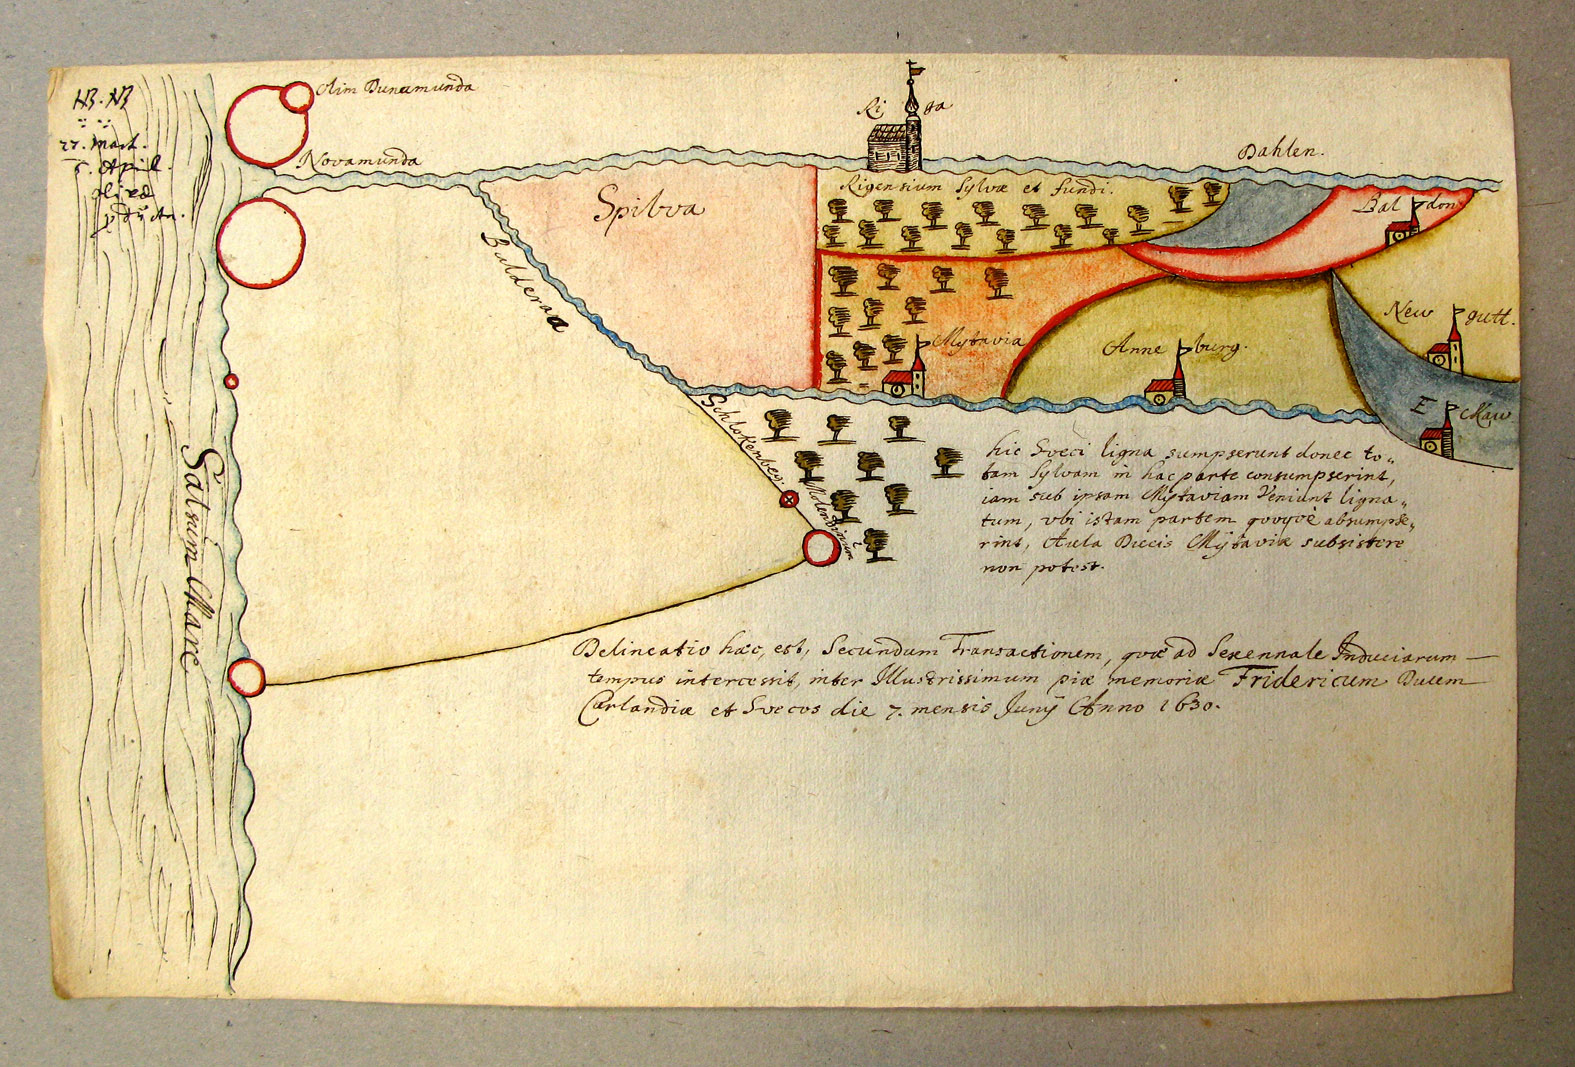 Olim Dunamunda
Novamunda
22. Mart.
April.
Salsum Mare
Bulderaa
Spilva
Ri ga
Rigensium Sylvæ et fundi.
Dahlen.
Bal don
New gutt.
Mÿtavia
Anne burg.
E Ckaw
Schlokenbeg.
Molendinum
hic Sveci ligna sumpserunt donec to„
tam Sylvam in hac parte consumpserint,
iam sub ipsam Mÿtaviam veniunt ligna„
tum, vbi istam partem qvoqvè absumpse„
rint, Aula Ducis Mÿtaviæ subsistere
non potest.
Delineatio hæc, est, Secundum Transactionem, qvæ ad Sexennale Induciarum
tempus intercessit, inter Illustrissimum piæ memoriæ Fridericum Ducem
Curlandiæ et Svecos die 7. mensis Junÿ Anno 1630.